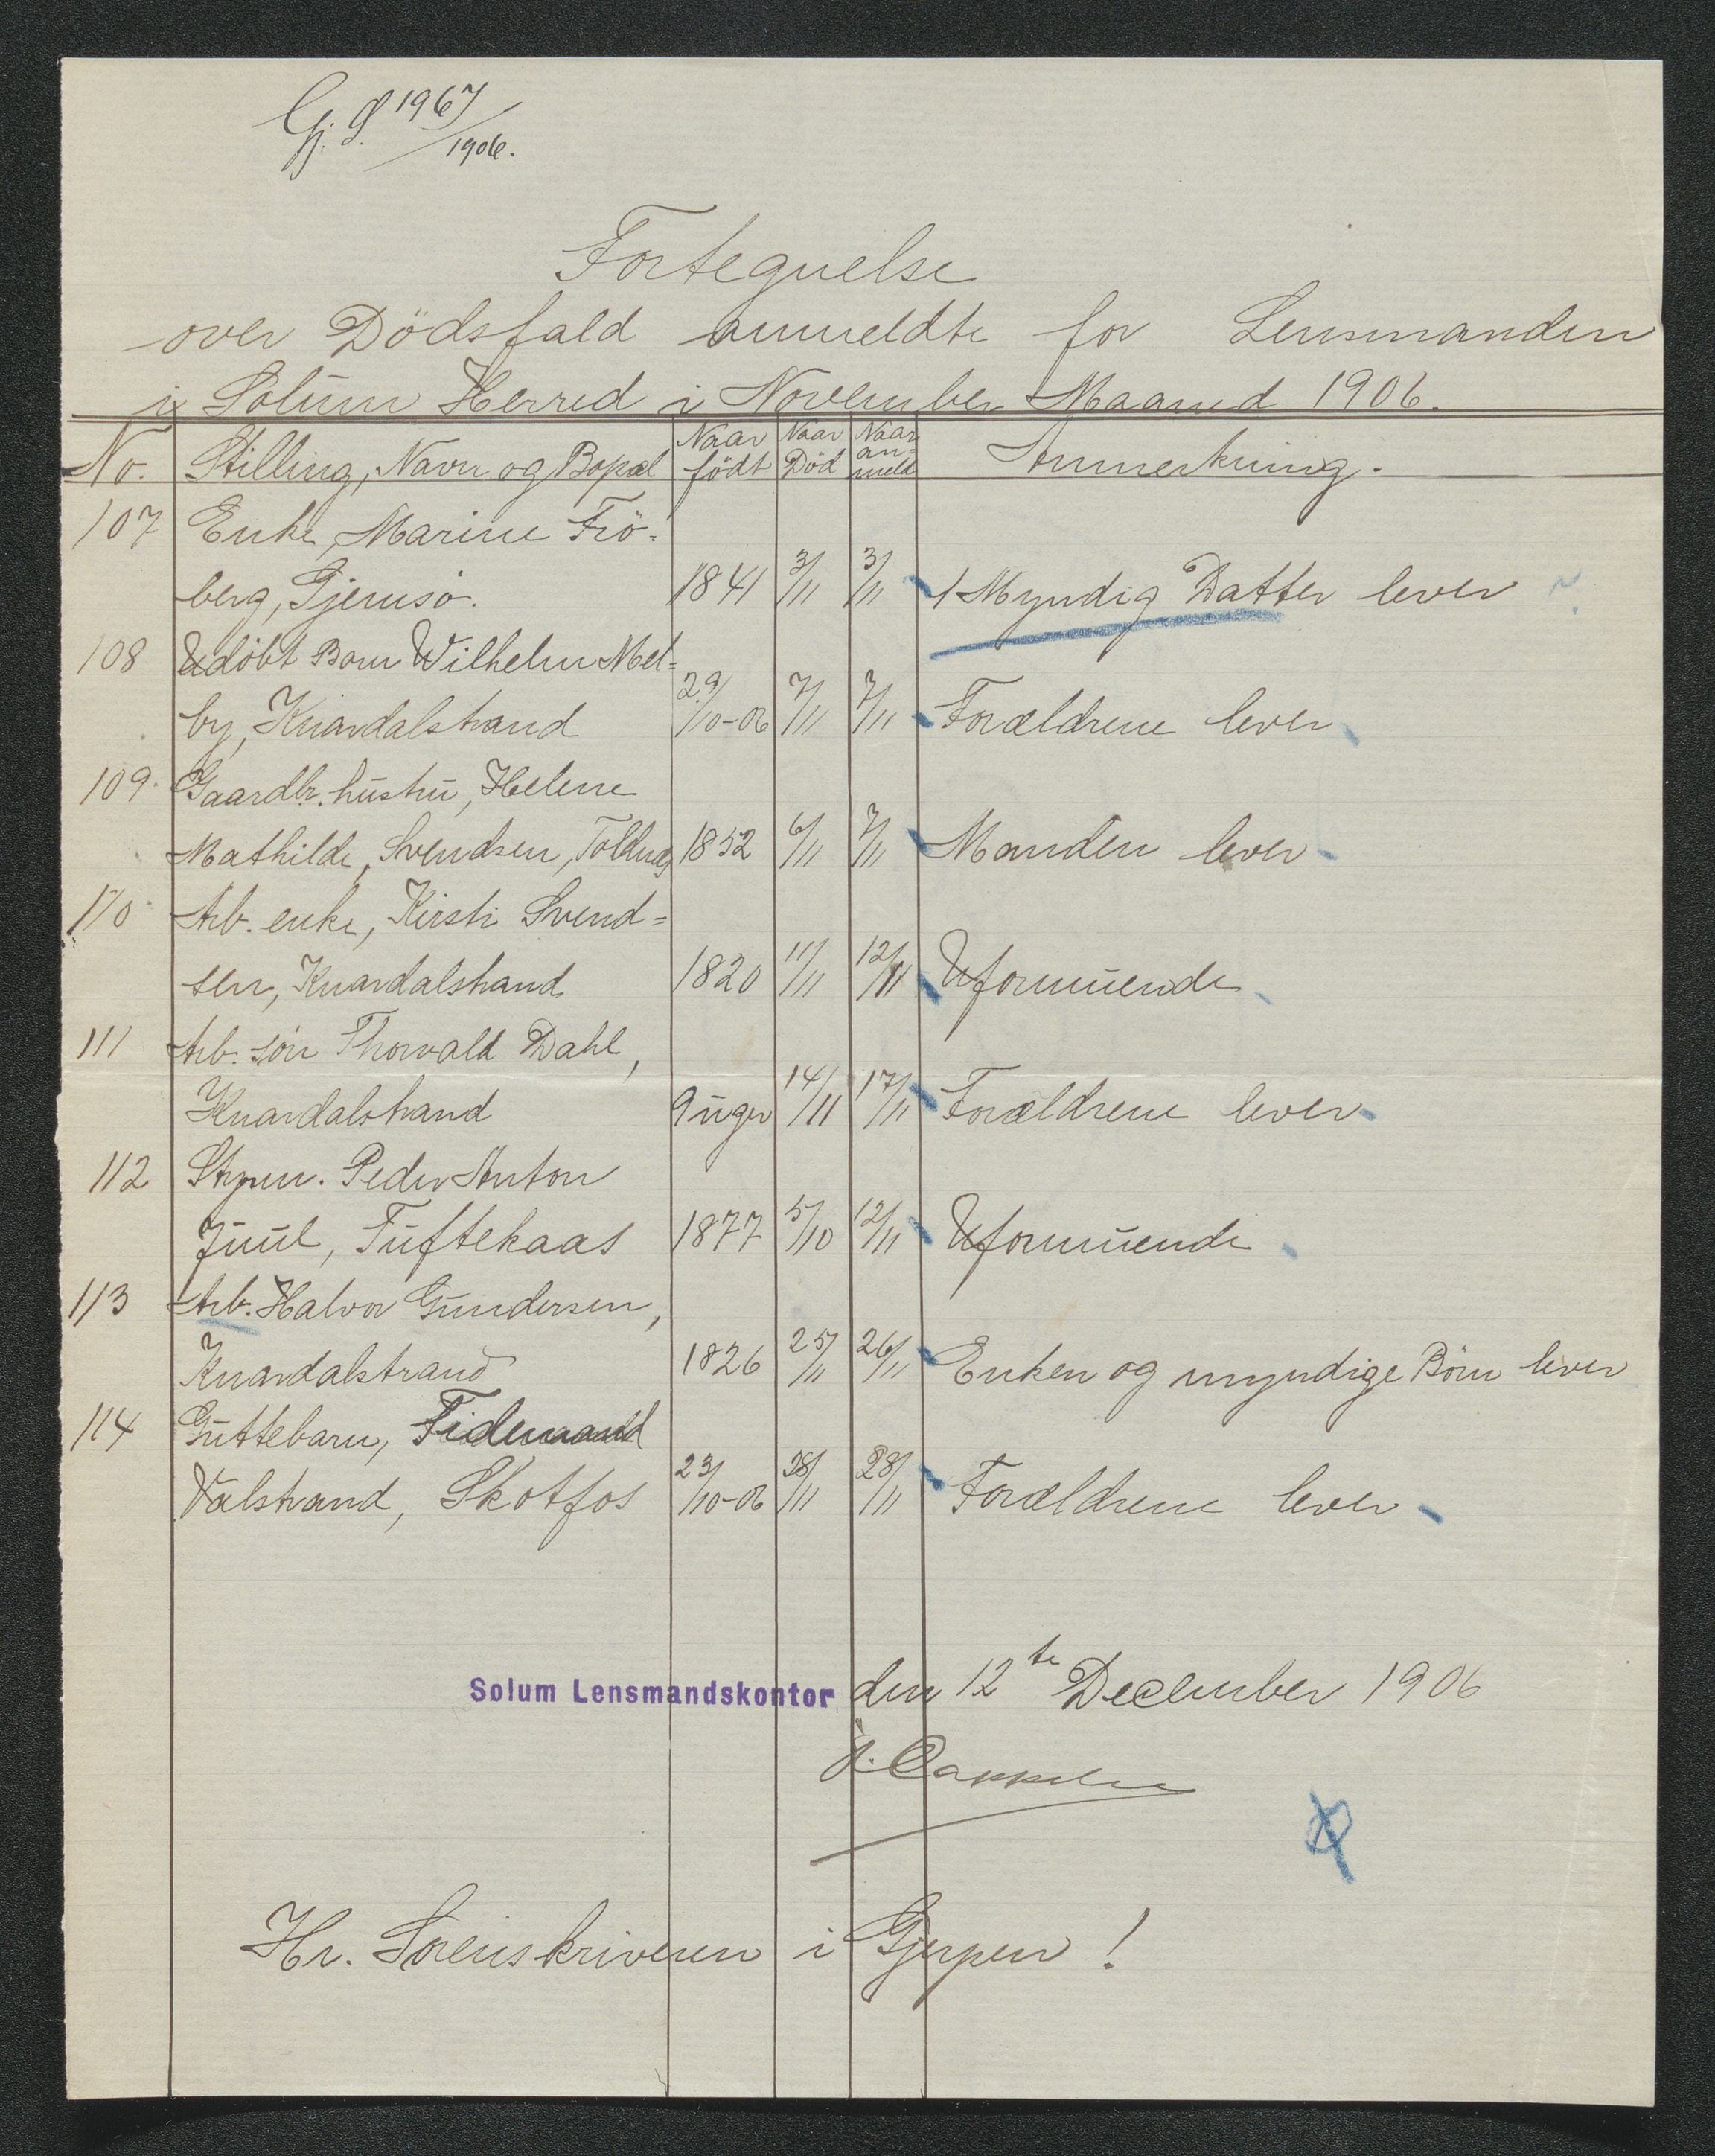 Gj. S 1967/1906.
Fortegnelse
over Dödsfald anmeldte for Lensmanden
i Solum Herred i November Maaned 1906.
No. Stilling, Navn og Bopæl Naar födt Naar Död Naar an-meldt Anmerkning.
107 Enke, Marine Frö-
berg, Gjemsö. 1841 3/11 3/11 1 Myndig Datter lever
108 Udöbt Barn Wilhelm Mel=
by, Knardalstrand 29/10-06 7/11 7/11 Forældrene lever
109. Gaardbr. hustru, Helene
Mathilde Svendsen, Tollnæs 1852 6/11 7/11 Manden lever
110 Arb. enke, Kirsti Svend=
sen, Knardalstrand 1820 11/11 12/11 Uformuende
111 Arb. sön Thorvald Dahl,
Knardalstrand 9 uger 14/11 17/11 Forældrene lever
112 Styrm. Peder Anton
Juul, Tuftekaas 1877 5/10 12/11 Uformuende
113 Arb. Halvor Gundersen,
Knardalstrand 1826 25/11 26/11 Enken og myndige Börn lever
114 Guttebarn,
Valstrand, Skotfos 23/10-06 28/11 28/11 Forældrene lever
Solum Lensmandskontor den 12te December 1906
Cappelen
Hr. Sorenskriveren i Gjerpen!